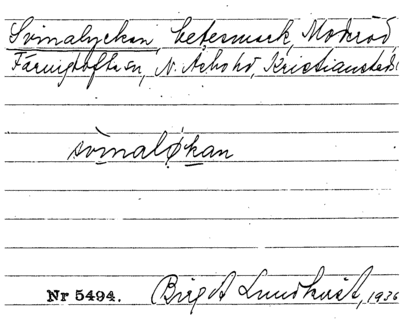 Svinalyckan, betesmark, Moderöd,
Färingtofta sn, N. Åsbo hd, Kristianstads l
svinaløkan
Nr 5494. Birgit Lundkvist, 1936